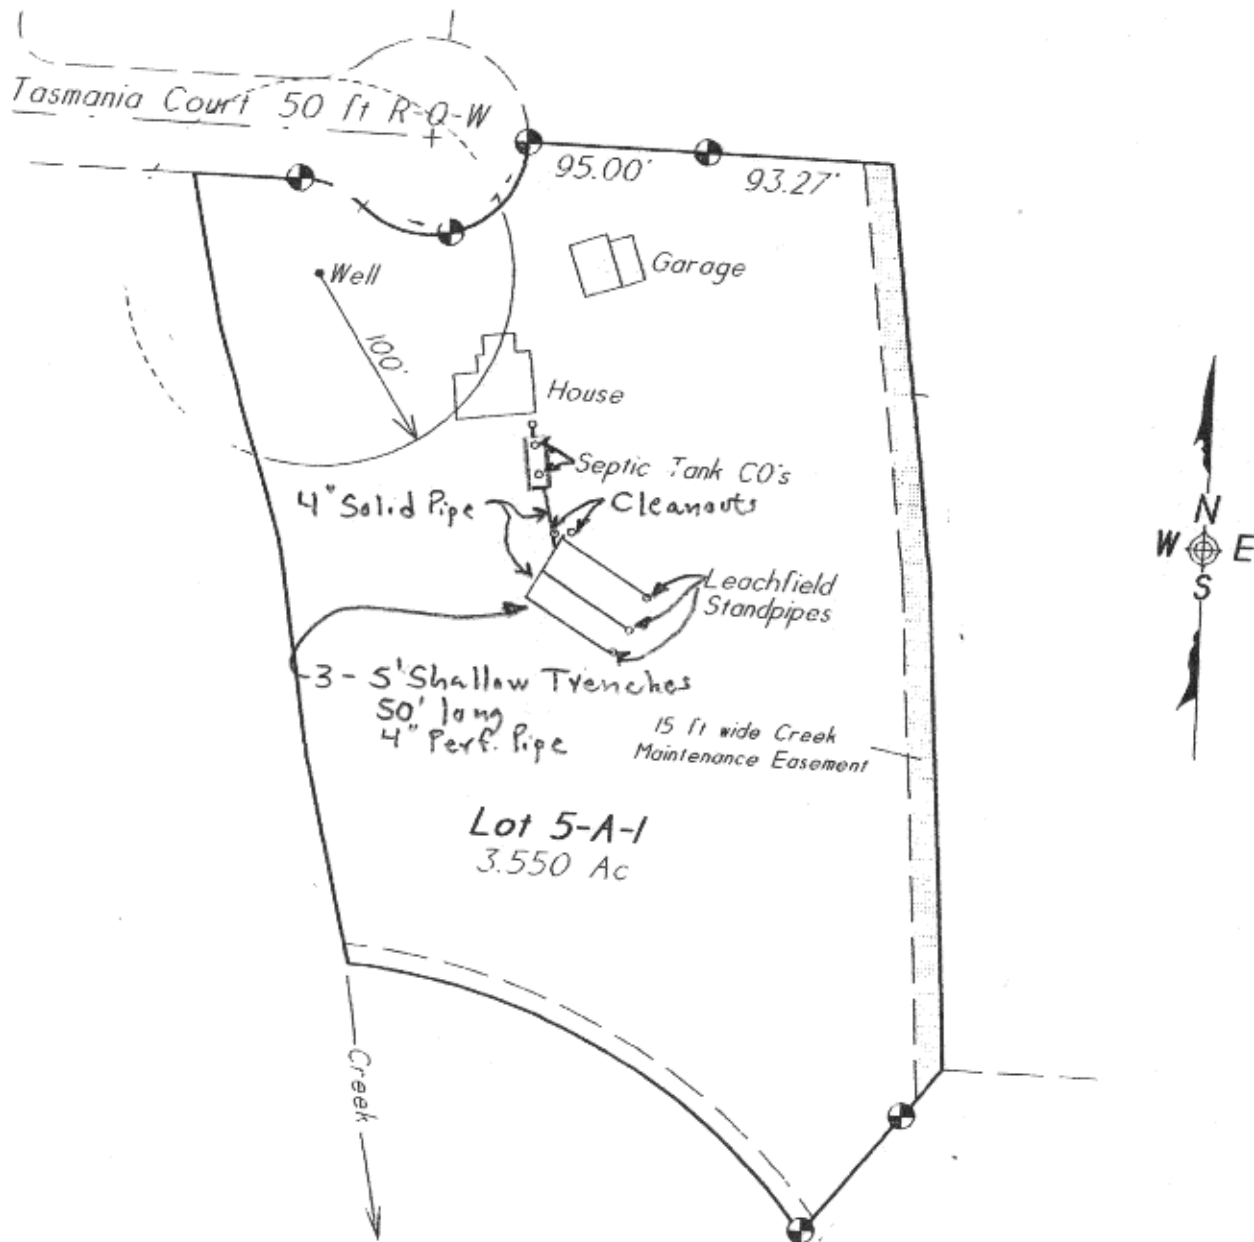 Tasmania Court 50 ft R-O-W
95.00'
93.27'
Garage
Well
100'
House
Septic Tank CO's
4" Solid Pipe
Cleanouts
Leachfield
Standpipes
3 - 5' Shallow Trenches
50' long
4" Perf. Pipe
15 ft wide Creek
Maintenance Easement
Lot 5-A-1
3.550 Ac
Creek
N
W E
S